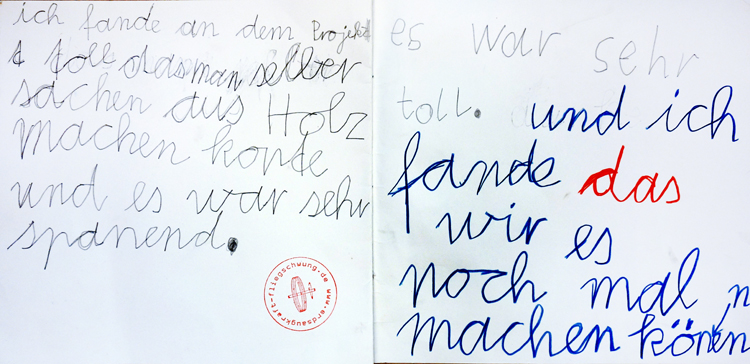 ich fande an dem Projekt
toll das man selber
sachen aus Holz
machen konte
und es war sehr
spanend.
www.erdsaugkraft-fliegschwung.de
es war sehr
toll. und ich
fande das
wir es
noch mal
machen könen